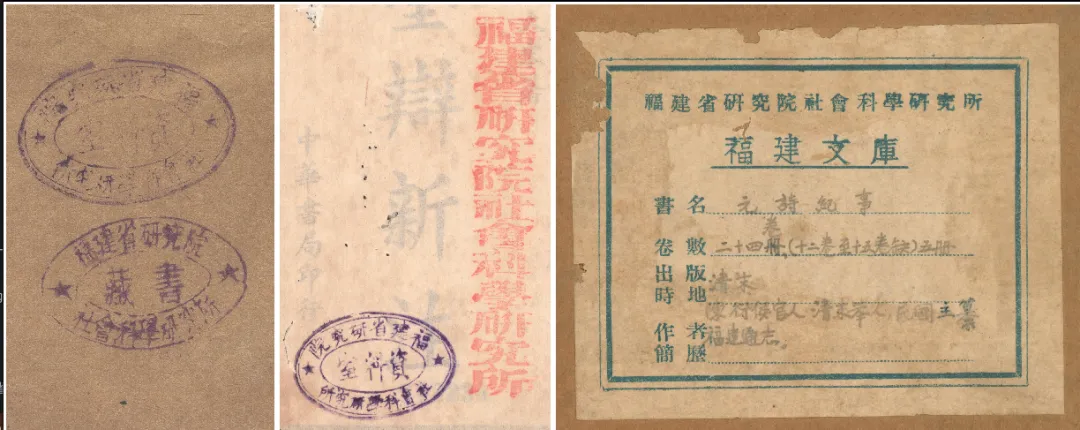 福建省研究院
資料室
社會科學研究所
福建省研究院
藏書
社會科學研究所
福建省研究院社會科學研究所
辯新注
中華書局印行
福建省研究院
資料室
社會科學研究所
福建省研究院社會科學硏究所
福建文庫
書名 元詩紀事
卷數 二十四卷冊(十二卷至十五卷缺)五冊
出版時地 清末
作者簡歷 陳衍侯官人,清末举人,民國主纂
福建通志。